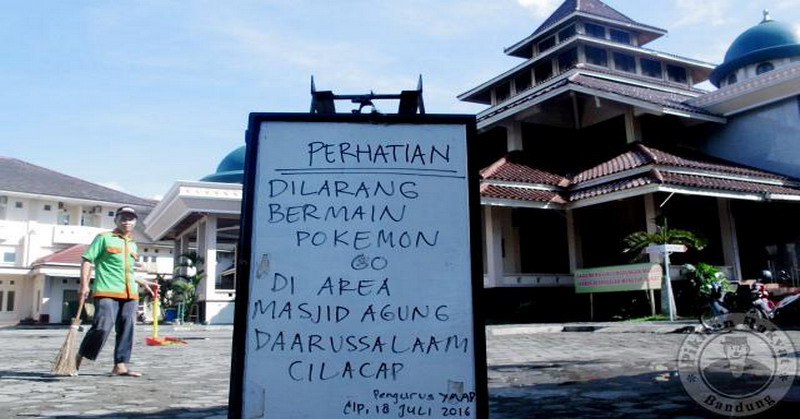 PERHATIAN
DILARANG
BERMAIN
POKEMON
GO
DI AREA
MASJID AGUNG
DAARUSSALAAM
CILACAP
Pengurus
Clp, 18 JULI 2016
Bandung